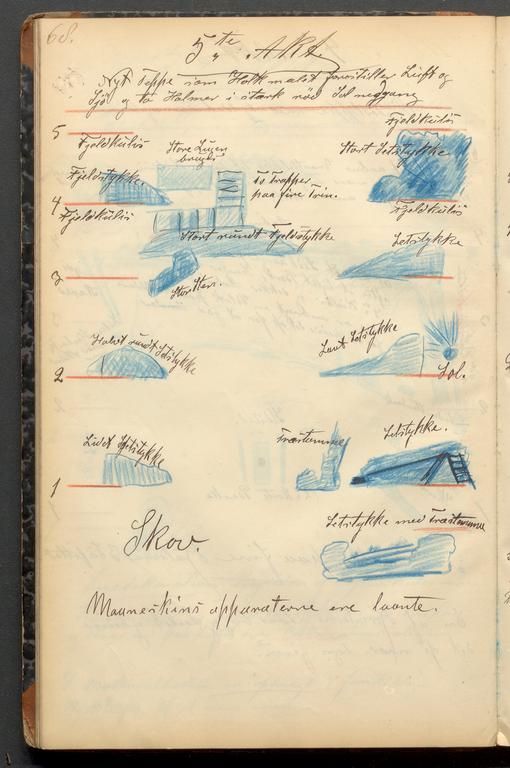 68.
5te Akt
Nyt Teppe som Holk malet forestiller Luft og
Sjö og to Holmer i stærk rød Solnedgang
5
Fjeldkulis
Fjeldkulis
Store Luzen
Stort Setstykke
Fjeldstykke
To Trapper
paa fire Trin.
4
Fjeldkulis
Fjeldkulis
Stort rundt Fjeldstykke
Setstykke
3
Stor Sten.
Halvt rundt Setstykke
Lavt Setstykke
2
Sol.
Lidet Setstykke
Træstamme
Setstykke.
1
Setstykke med Træstamme
Skov.
Maaneskins apparaterne ere laante.